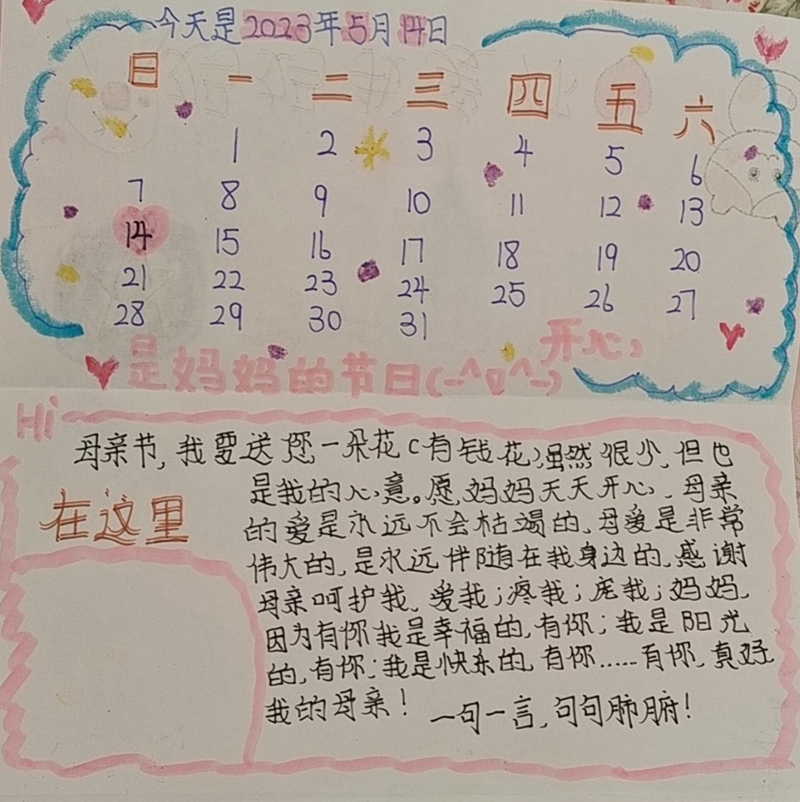 今天是2023年5月14日
日 一 二 三 四 五 六
1 2 3 4 5 6
7 8 9 10 11 12 13
14 15 16 17 18 19 20
21 22 23 24 25 26 27
28 29 30 31
是妈妈的节日(-^O^-)
开心
Hi
母亲节,我要送您一朵花(有钱花)虽然很少,但也
是我的心意。愿,妈妈天天开心、母亲
的爱是永远不会枯竭的,母爱是非常
伟大的,是永远伴随在我身边的,感谢
母亲呵护我,爱我;疼我;宠我;妈妈,
因为有你我是幸福的,有你;我是阳光
的,有你;我是快乐的,有你……有你,真好,
我的母亲!
一句一言,句句肺腑!
在这里